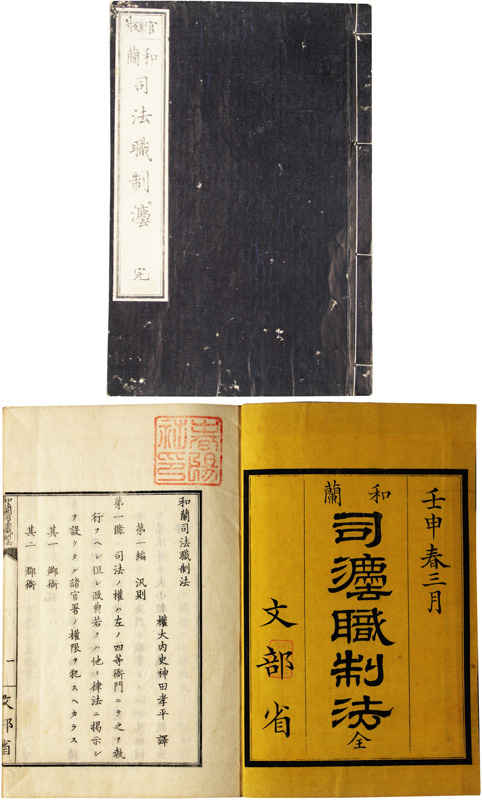 官版
和蘭
司法職制灋
完
壬申春三月
和蘭
司灋職制法
全
文部省
和蘭司法職制法
權大内史神田孝平 譯
第一編 汎則
第一條 司法ノ權ハ左ノ四等衙門ニテ之ヲ執
行フヘシ但シ政典若クハ他ノ律法ニ掲示シ
テ設ケタル諸官署ノ權限ヲ犯スヘカラス
其一 衙
其二 衙
和蘭司法職制法
一
文部省